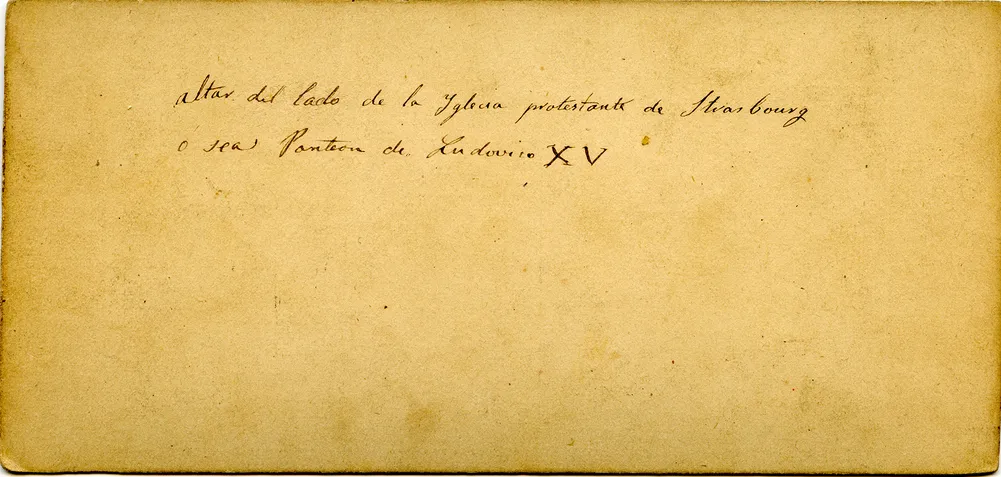 altar del lado de la Yglecia protestante de Strasbourg
o sea Panteon de Ludovico XV